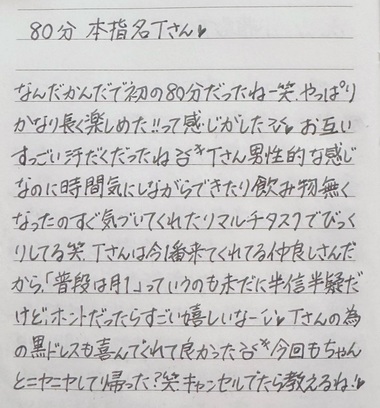 80分 本指名Tさん♥
なんだかんだで初の80分だったねー笑.やっぱり
かなり長く楽しめた!!って感じがした♥ お互い
すっごい汗だくだったね Tさん男性的な感じ
なのに時間気にしながらできたり飲み物無く
なったのすぐ気づいてくれたりマルチタスクでびっく
りしてる笑.Tさんは今1番来てくれてる仲良しさんだ
から、「普段は月1」っていうのも未だに半信半疑だ
けど、ホントだったらすごい嬉しいなー♥Tさんの為
の黒ドレスも喜んでくれて良かった 今回もちゃん
とニヤニヤして帰った?笑 キャンセルでたら教えるね!